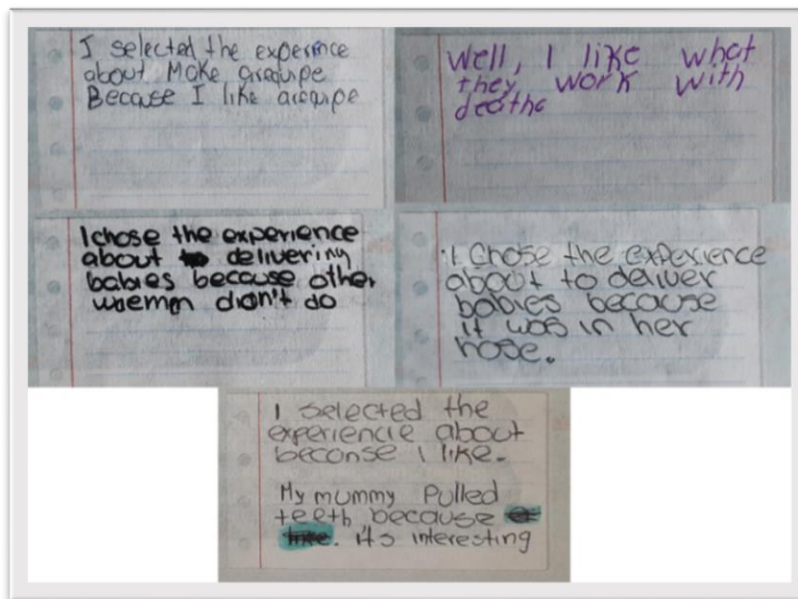 I selected the experience
about Make arequipe
Because I like arequipe
Well, I like what
they work with
deaths
I chose the experience
about delivering
babies because other
waemen didn't do
I Chose the experience
about to deliver
babies because
it was in her
hose.
I selected the
experiencie about
beconse I like.
My mummy Pulled
teeth because
it's interesting